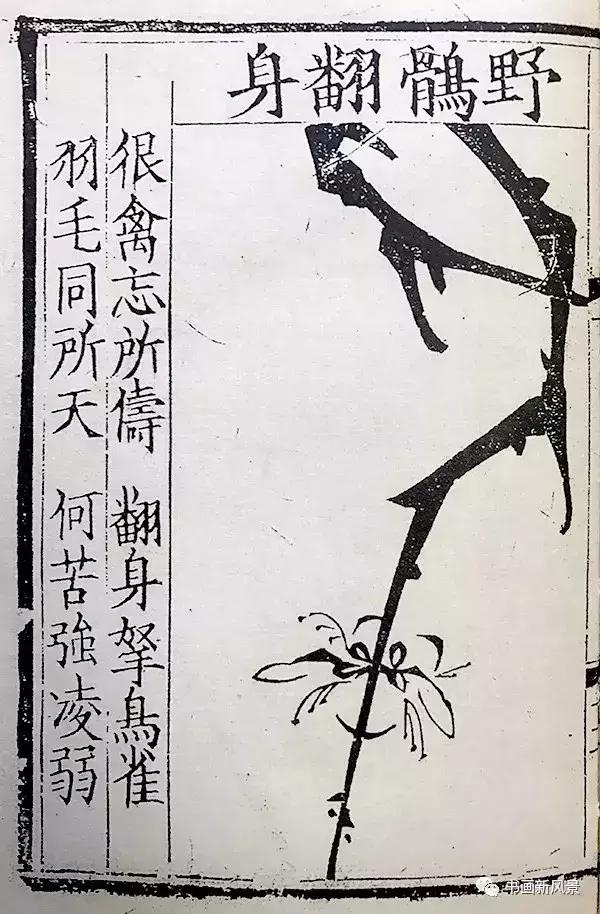 野鶻翻身
很禽忘所儔 翻身拏鳥雀
羽毛同所天 何苦強凌弱
书画新风景